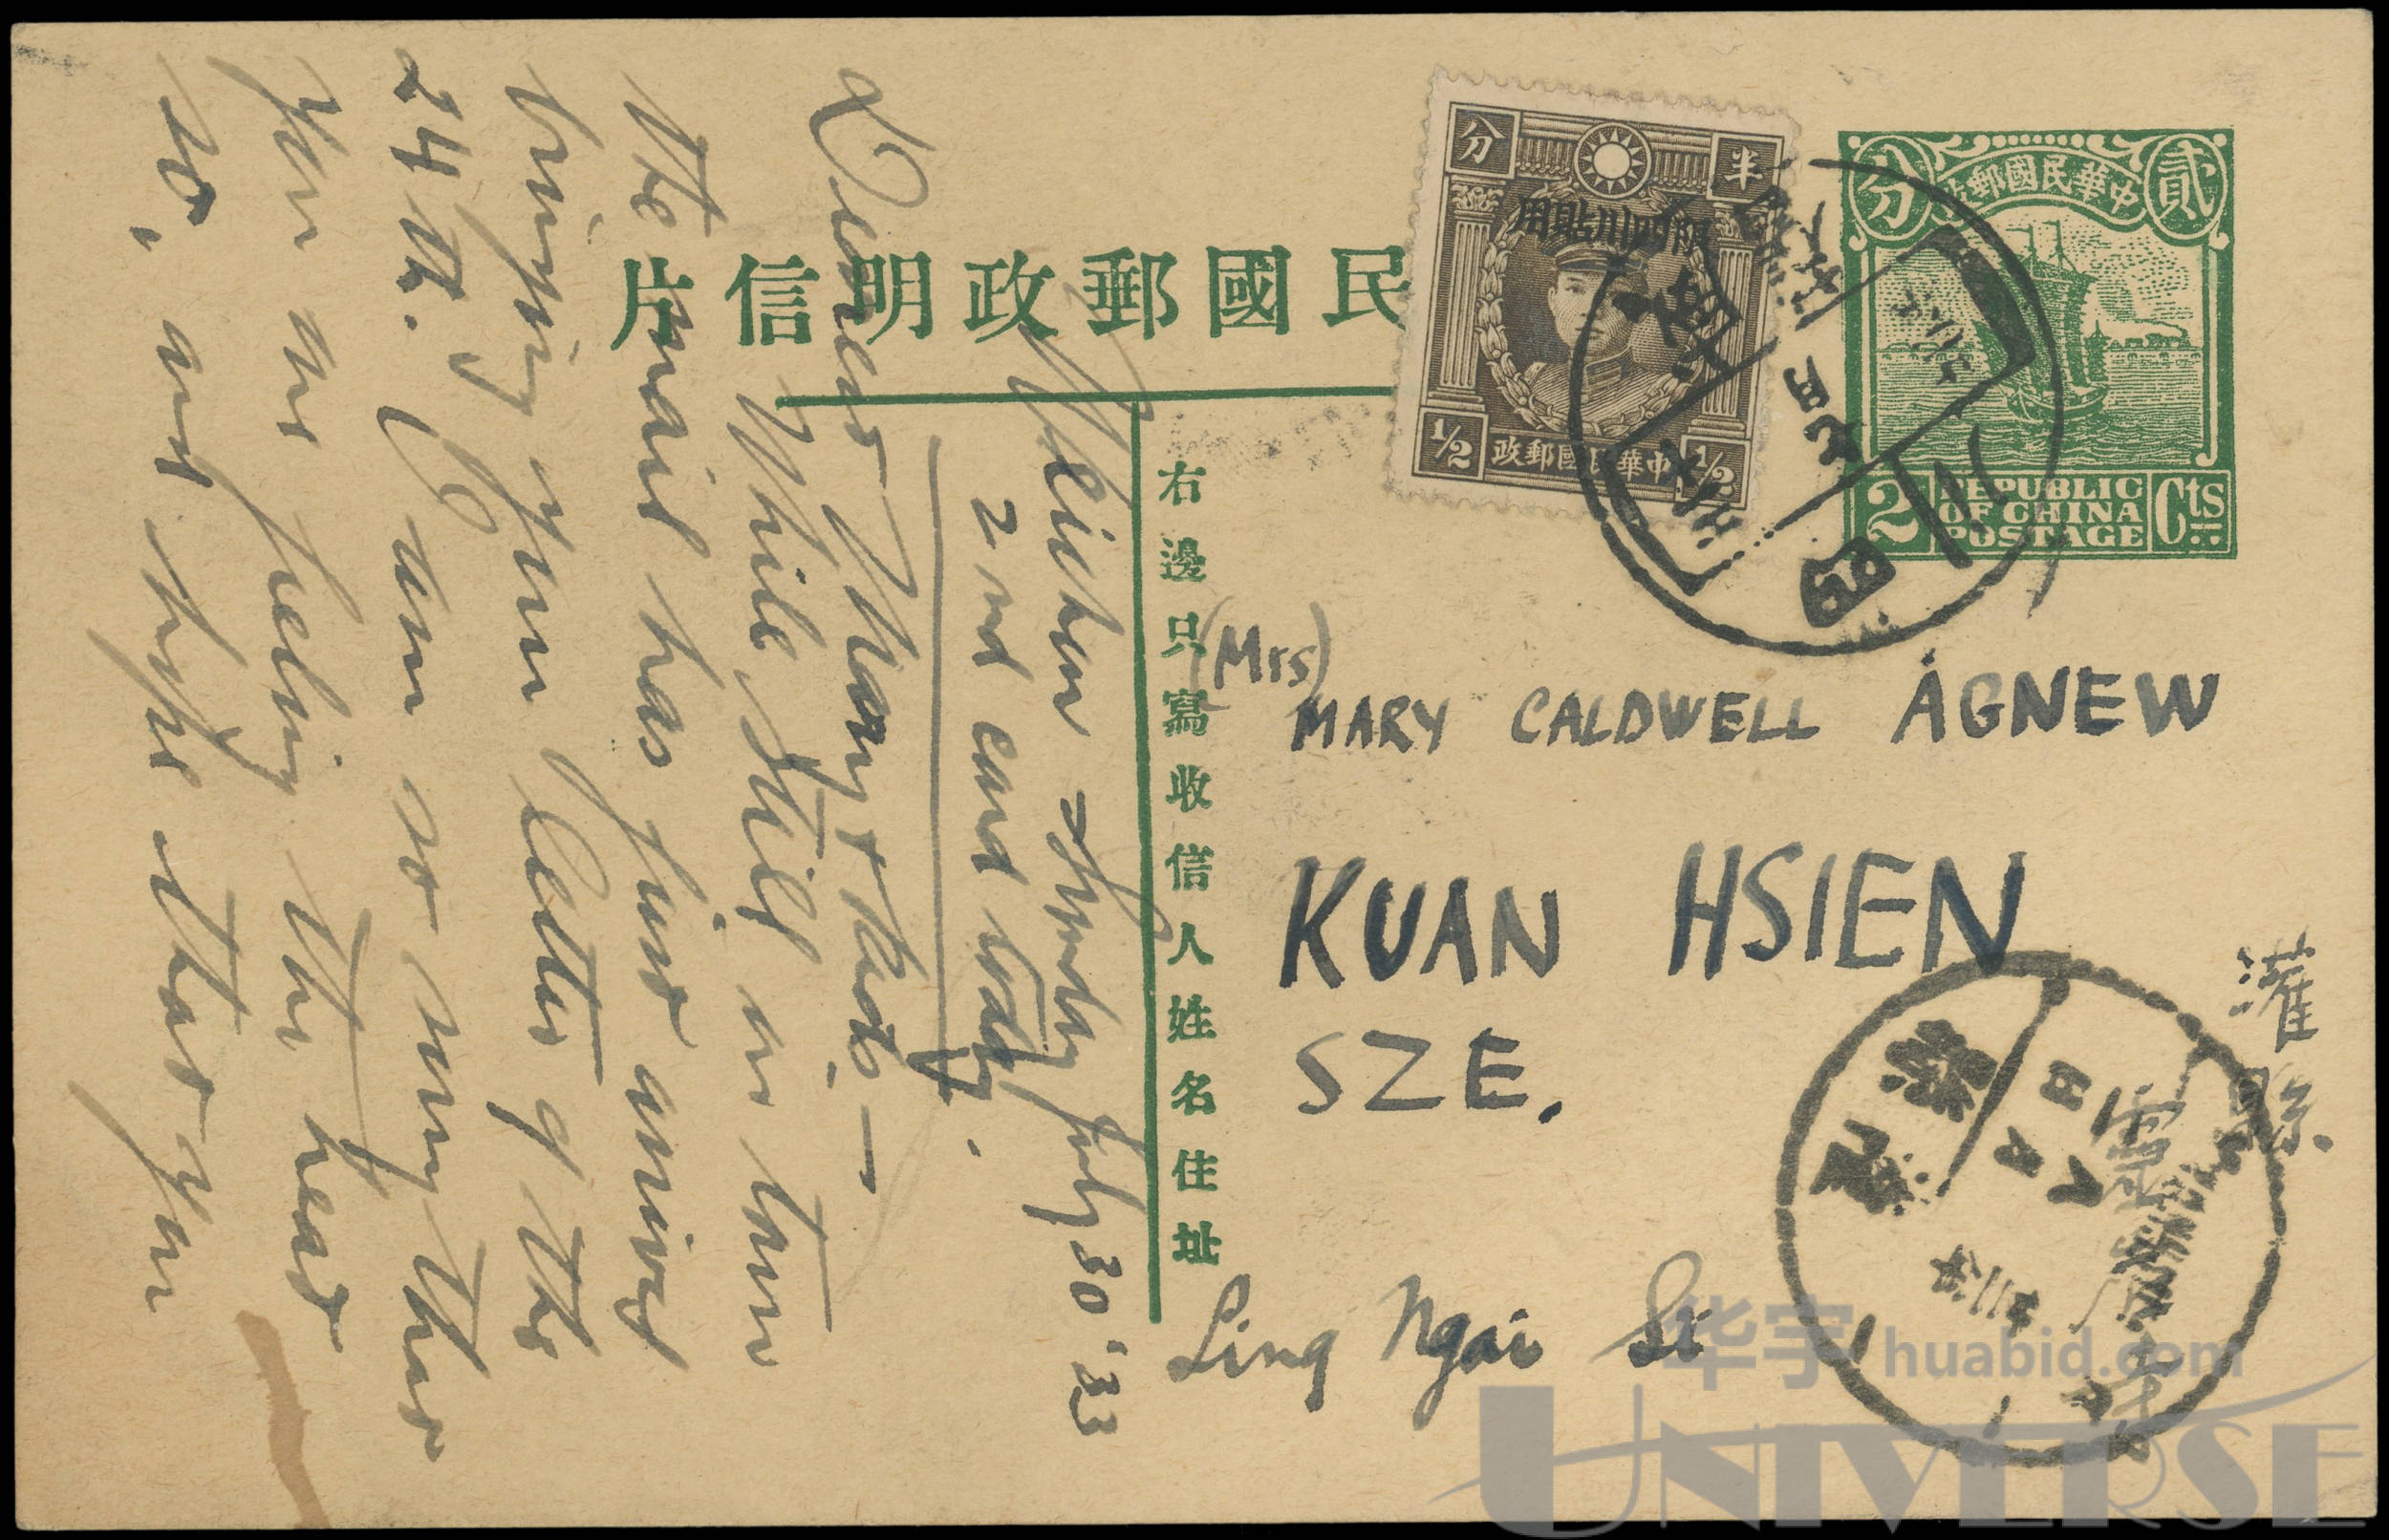 中華民國郵政
貳
分
2
REPUBLIC
OF CHINA
POSTAGE
Cts
半
分
限四川貼用
1/2
中華民國郵政
1/2
民國郵政明信片
右邊只寫收信人姓名住址
(Mrs)
MARY CALDWELL AGNEW
KUAN HSIEN
SZE.
Ling Ngai Si
灌縣
靈巖寺
Sunday July 30 '33
2nd card today.
Dearest Mary & kids —
While still in town
the maid has just arrived
bringing your letter of the
24th. I am so sorry that
you are feeling the heat
so, and hope that you
华宇 huabid.com
UNIVERSE